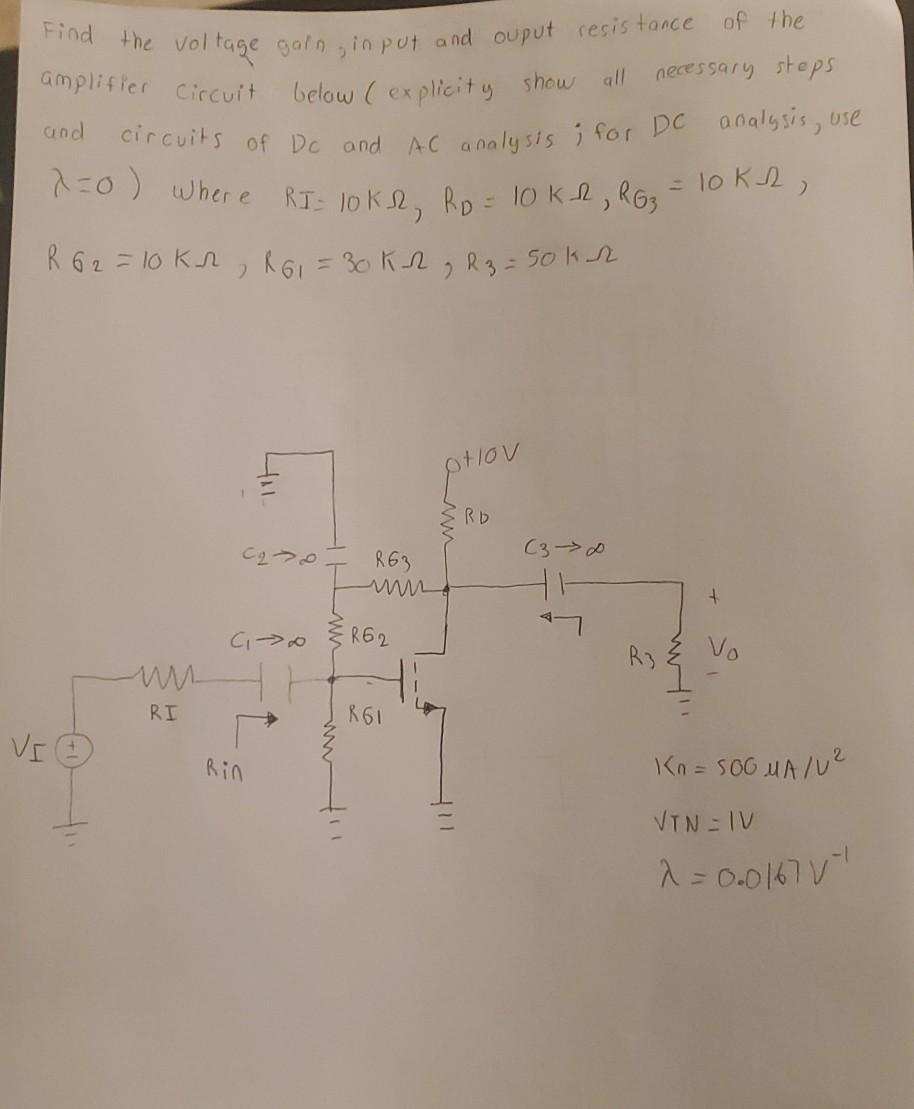 Find the voltage gain, input and ouput resistance of the
amplifier circuit below ( explicity show all necessary steps
and circuits of DC and AC analysis ; for DC analysis, use
λ=0 ) Where RI= 10KΩ, RD = 10 KΩ, RG3 = 10 KΩ,
RG2 = 10 KΩ, RG1 = 30 KΩ, R3 = 50 KΩ
+10V
RD
C2→∞
RG3
C3→∞
C1→∞
RG2
+
R3
Vo
-
RI
RG1
VI
+
-
Rin
Kn = 500 μA/V²
VTN = 1V
λ = 0.0167 V⁻¹